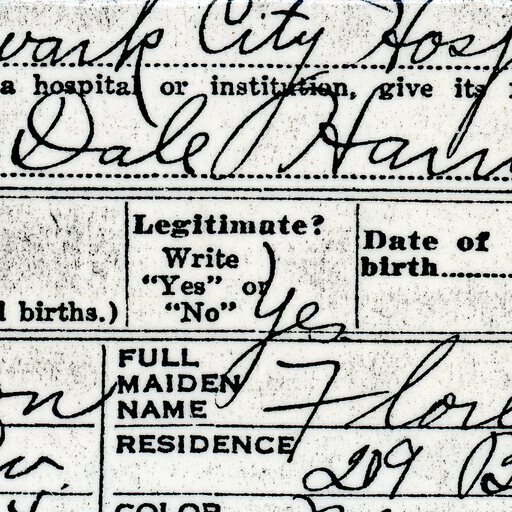 City Hosp
a hospital or institution, give its
Dale Harri
Legitimate?
Write
"Yes" or
"No" Yes
Date of
birth
l births.)
FULL
MAIDEN
NAME Flore
RESIDENCE 219 B
COLOR